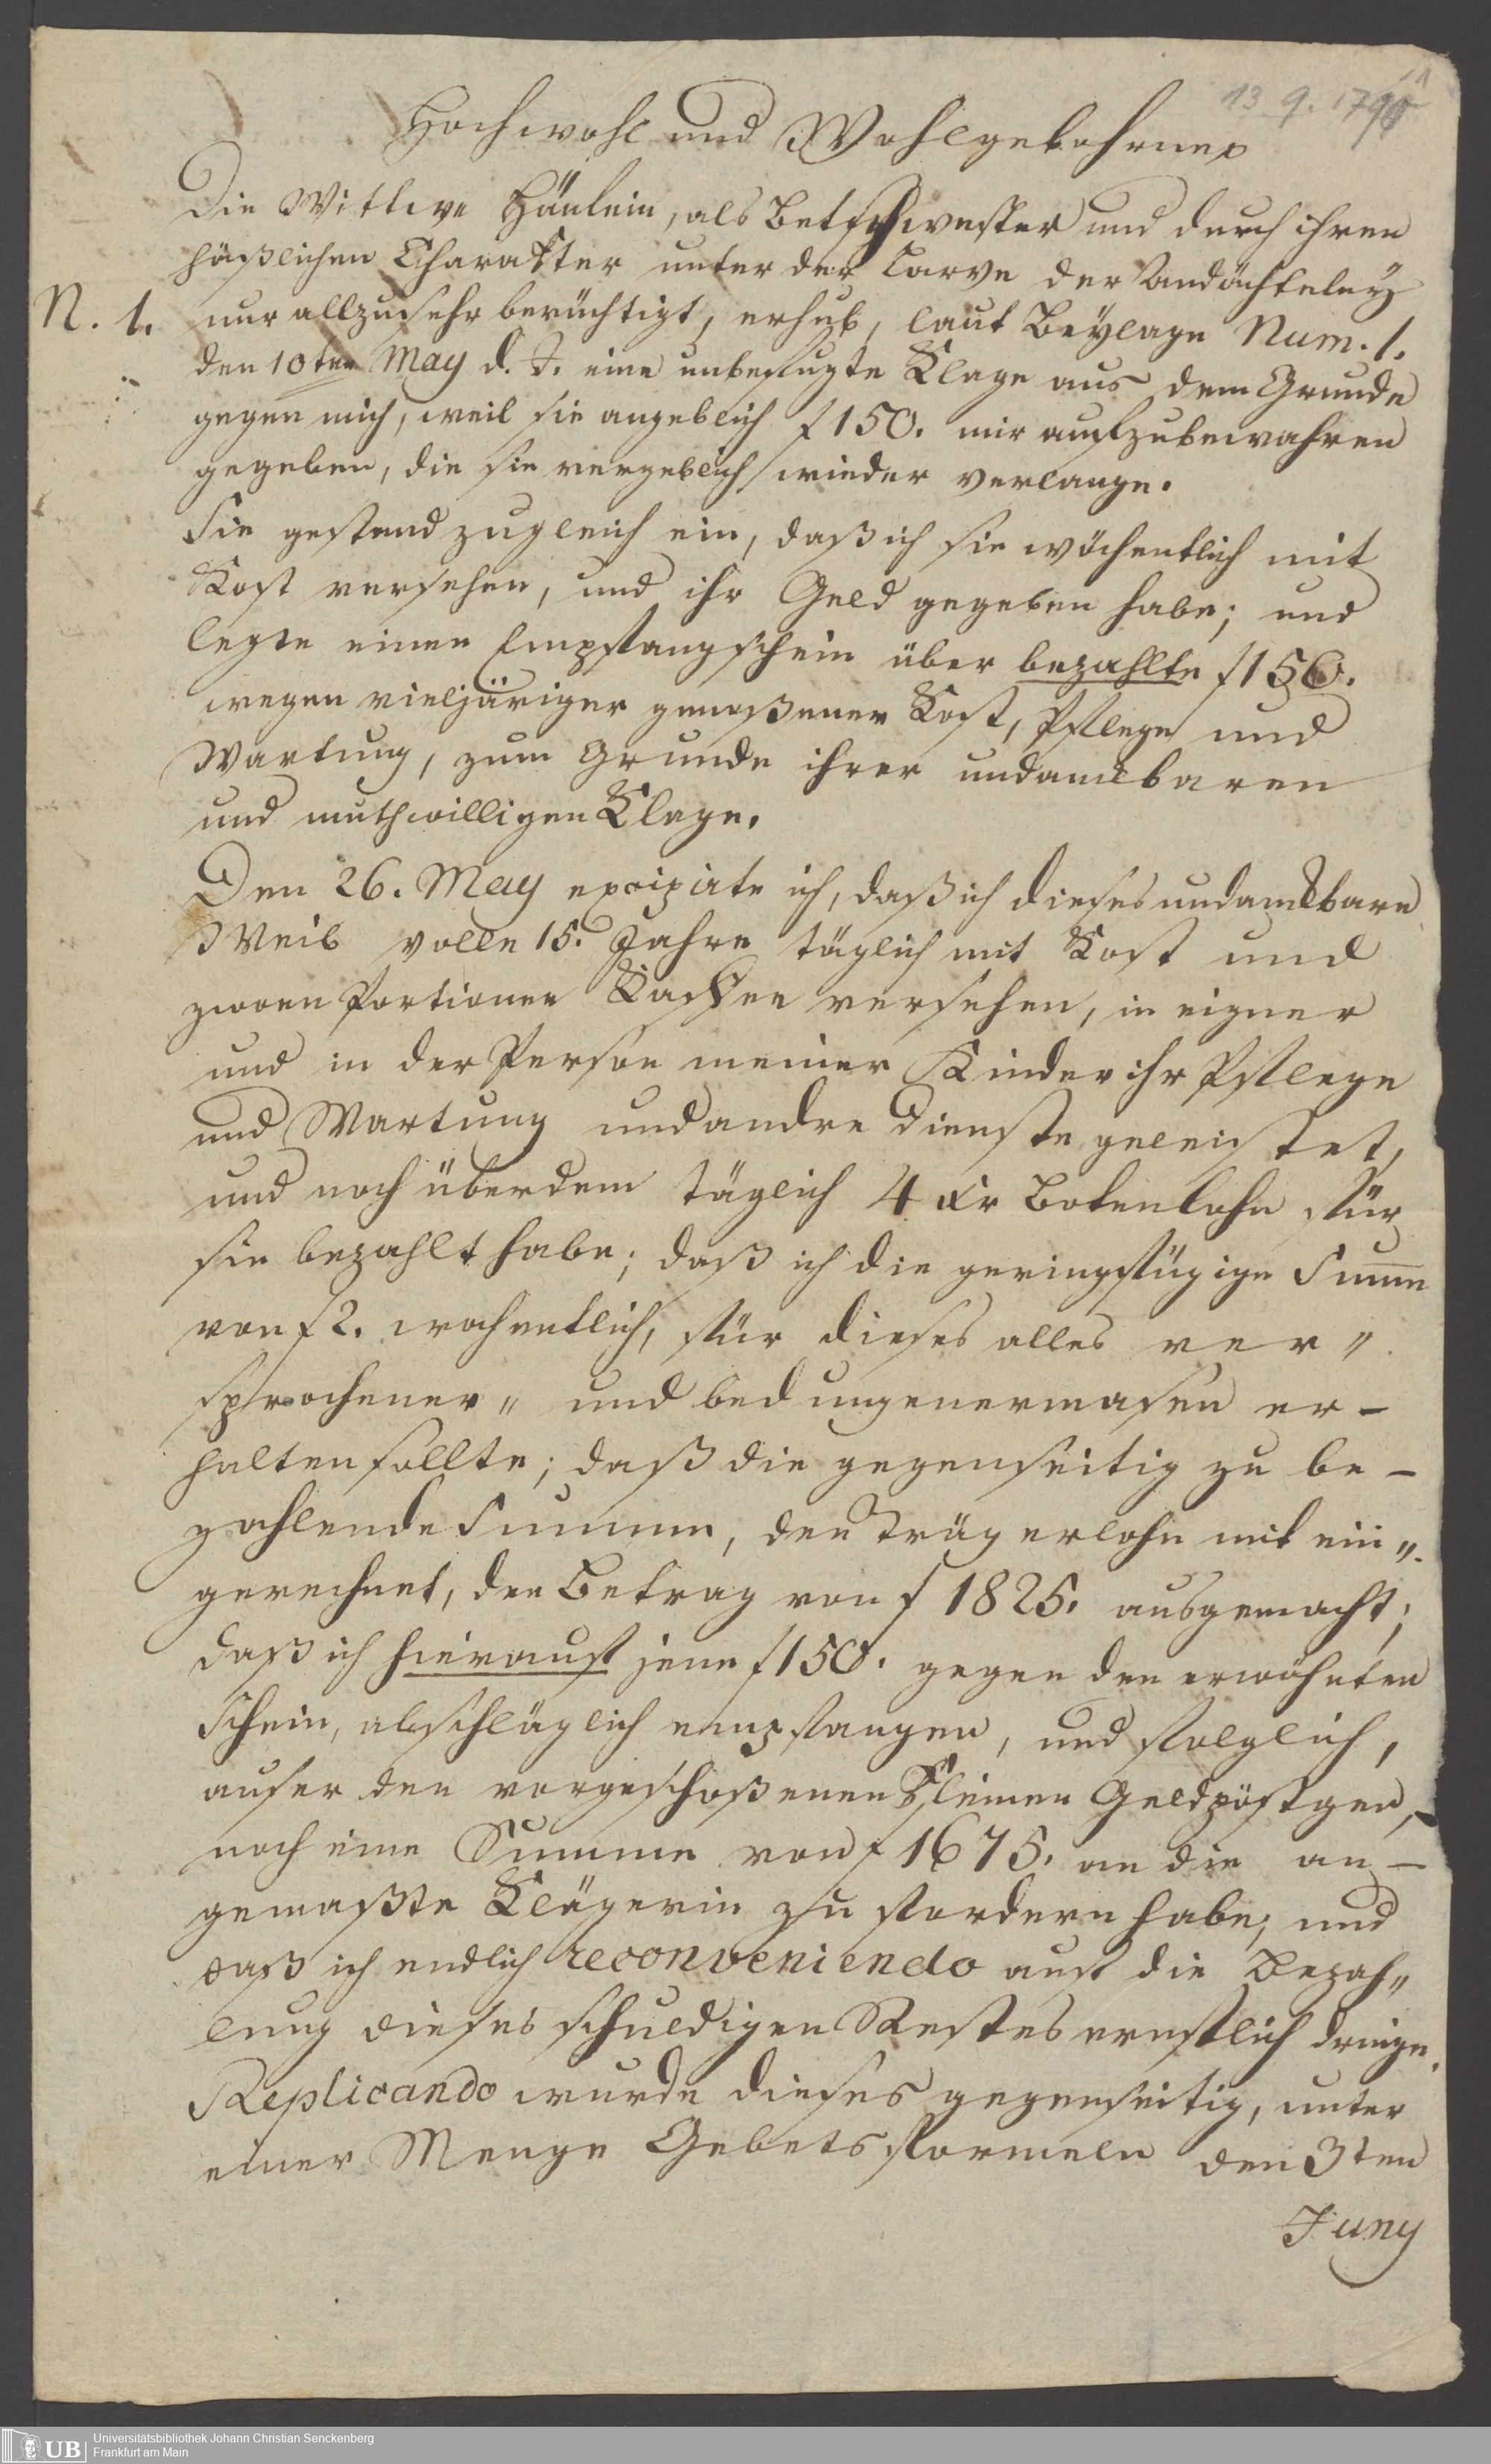 13 9. 1790
Hochwohl und Wohlgebohrnep
Die Wittwe Häulein, als Betschwester und durch ihren
häßlichen Charakter unter der Larve der Andächteley
N. 1. nur allzusehr berüchtigt, erhub, laut Beylage Num. 1.
den 10ten May d. J. eine unbefugte Klage aus dem Grunde
gegen mich, weil sie angeblich f 150. mir aufzubewahren
gegeben, die sie vergeblich wieder verlange.
Sie gestand zugleich ein, daß ich sie wöchentlich mit
Kost versehen, und ihr Geld gegeben habe; und
legte einen Empfangschein über bezahlte f 150.
wegen vieljäriger genoßener Kost, Pflege und
Wartung, zum Grunde ihrer undankbaren
und muthwilligen Klage.
Den 26. May excipirte ich, daß ich dieses undankbare
Weib volle 15. Jahre täglich mit Kost und
zwoen Portionen Kaffee versehen, in eigner
und in der Person meiner Kinder ihr Pflege
und Wartung und andre Dienste geleistet,
und noch überdem täglich 4 xr Botenlohn für
sie bezahlt habe; daß ich die geringfügige Summe
von f 2. wochentlich, für dieses alles ver„
sprochener„ und bedungenermasen er-
halten sollte; daß die gegenseitig zu be-
zahlende Summe, den Trägerlohn mit ein„
gerechnet, den Betrag von f 1825. ausgemacht;
daß ich hierauf jene f 150. gegen den erwähnten
Schein, abschläglich empfangen, und folglich,
auser den vorgeschoßenen kleinen Geldpöstgen,
noch eine Summe von f 1675. an die an-
gemaßte Klägerin zu fordern habe; und
daß ich endlich reconveniendo auf die Bezah„
lung dieses schuldigen Restes ernstlich dringe.
Replicando wurde dieses gegenseitig, unter
einer Menge Gebetsformeln den 3ten
Juny
UB Universitätsbibliothek Johann Christian Senckenberg
Frankfurt am Main